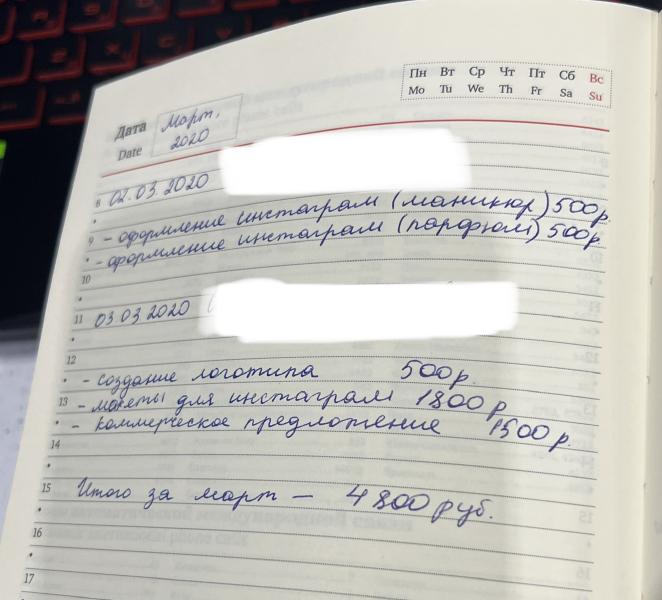 Пн Вт Ср Чт Пт Сб Вс
Mo Tu We Th Fr Sa Su
Дата Март,
Date 2020
8 02.03.2020
9 - оформление инстаграм (маникюр) 500р.
- оформление инстаграм (парфюм) 500р.
10
11 03 03 2020
12
- создание логотипа 500р.
13 - макеты для инстаграм 1800 р
- коммерческое предложение 1500 р.
14
15 Итого за март - 4800 руб.
16
17